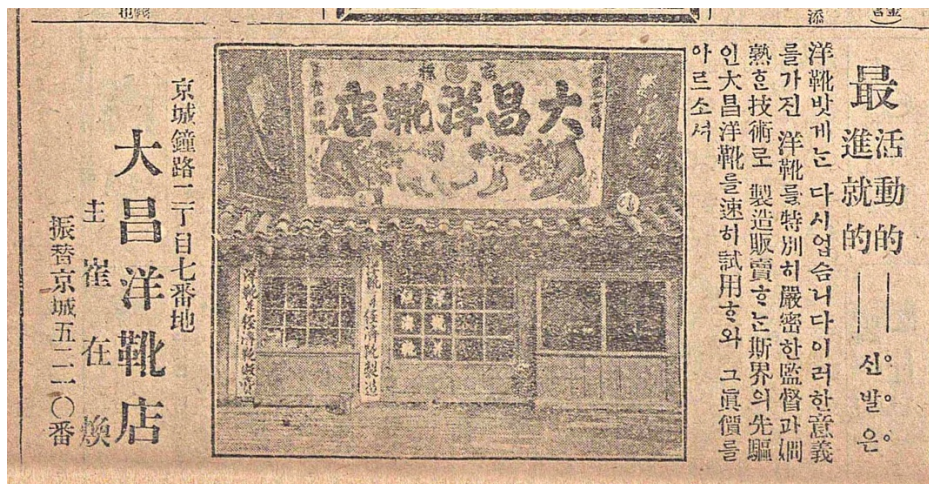 最
活動的
進就的
신발은
洋靴밧게는 다시업슴니다이러한意義
를가진 洋靴를特別히嚴密한監督과嫺
熟한技術로 製造販賣ᄒᆞ는斯界의先驅
인大昌洋靴를速히試用ᄒᆞ와 그眞價를
아르소셔
店靴洋昌大
洋靴와經濟靴製造
京城鐘路二丁目七番地
大昌洋靴店
主 崔在煥
振替京城五二一〇番